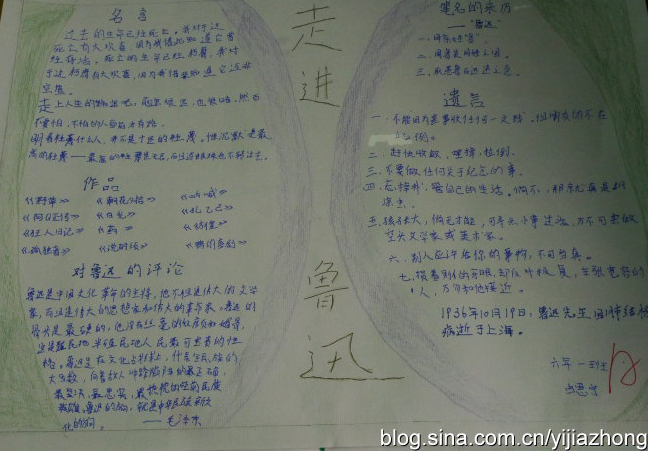 名言
过去的生命已经死亡。我对于这
死亡有大欢喜，因为我借此知道它曾
经存活。死亡的生命已经朽腐。我对
于这朽腐有大欢喜，因为我借此知道它还非
空虚。
走上人生的旅途吧。前途很远，也很暗。然而
不要怕。不怕的人的面前才有路。
作品
《野草》 《朝花夕拾》 《呐喊》
《阿Q正传》 《白光》 《孔乙己》
《狂人日记》 《药》 《彷徨》
《孤独者》
对鲁迅的评论
鲁迅是中国文化革命的主将，他不但是伟大的文学
家，而且是伟大的思想家和伟大的革命家。鲁迅的
骨头是最硬的，他没有丝毫的奴颜和媚骨，
这是殖民地半殖民地人民最可贵的性
格。鲁迅是在文化战线上，代表全民族的
大多数，向着敌人冲锋陷阵的最正确、
最坚决、最忠实、最热忱的空前的民族
英雄。鲁迅的方向，就是中华民族新文
化的方向。
——毛泽东
走进鲁迅
笔名的来历
——"鲁迅"
一、母亲姓鲁。
二、周鲁是同姓之国。
三、取愚鲁而迅速之意。
遗言
一、不能因为丧事收任何一文钱，但朋友的不在
此例。
二、赶快收敛，埋掉，拉倒。
三、不要做任何关于纪念的事。
四、忘掉我，管自己的生活。倘不，那就真是糊
涂虫。
五、孩子长大，倘无才能，可寻点小事过活，万不可去做
空头文学家或美术家。
六、别人应许给你的事物，不可当真。
七、损着别人的牙眼，却反对报复，主张宽容的
人，万勿和他接近。
1936年10月19日，鲁迅先生因肺结核
病逝于上海。
六年一班
blog.sina.com.cn/yijiazhong